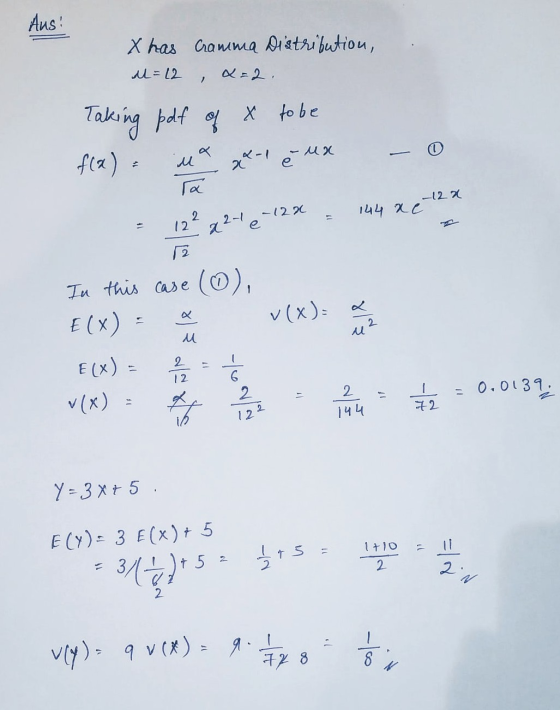 Ans:
X has Gramma Distribution,
μ=12 , α=2.
Taking pdf of X to be
f(x) = μ^α/√α x^(α-1) e^(-μx) — ①
= 12²/√2 x^(2-1) e^(-12x) = 144 x e^(-12x)
In this case (①),
E(X) = α/μ V(X) = α/μ²
E(X) = 2/12 = 1/6
V(X) = 2/12² = 2/144 = 1/72 = 0.0139.
Y=3X+5.
E(Y)= 3 E(X)+5
= 3(1/6)+5 = 1/2+5 = 1+10/2 = 11/2.
V(Y)= 9 V(X) = 9·1/72 8 = 1/8.